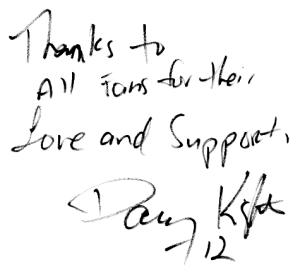 Thanks to
All Fans for their
Love and Support.
12